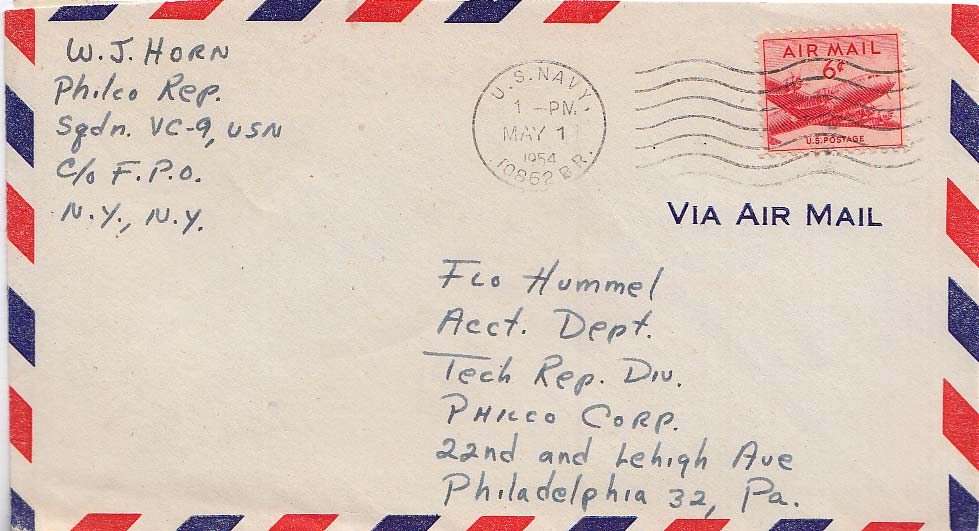 W. J. HORN
Philco Rep.
Sqdn. VC-9, USN
C/o F.P.O.
N.Y., N.Y.
U.S. NAVY.
1 -PM
MAY 1
1954
10862 BR.
AIR MAIL
6¢
U.S. POSTAGE
VIA AIR MAIL
FLO Hummel
Acct. Dept.
Tech Rep. Div.
PHILCO CORP.
22nd and Lehigh Ave
Philadelphia 32, Pa.